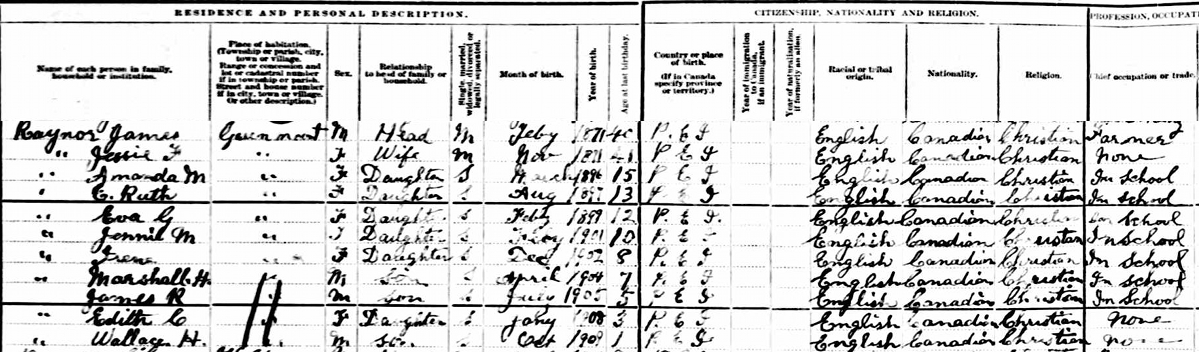 RESIDENCE AND PERSONAL DESCRIPTION. CITIZENSHIP, NATIONALITY AND RELIGION. PROFESSION, OCCUPAT
Name of each person in family, household or institution. Place of habitation. (Township or parish, city, town or village. Range or concession and lot or cadastral number if in township or parish. Street and house number if in city, town or village. Or other description.) Sex. Relationship to head of family or household. Single, married, widowed, divorced or legally separated. Month of birth. Year of birth. Age at last birthday. Country or place of birth. (If in Canada specify province or territory.) Year of immigration to Canada, if an immigrant. Year of naturalization, if formerly an alien. Racial or tribal origin. Nationality. Religion. Chief occupation or trade.
Raynor James M Head M Feby 1871 40 P. E I English Canadian Christian Farmer
" Jessie F " F Wife M Nov 41 P E I English Canadian Christian None
" Amanda M " F Daughter S March 1896 15 P E I English Canadian Christian In School
" E. Ruth " F Daughter S Aug 1897 13 P E I English Canadian Christian In school
" Eva G " F Daught S Feby 1899 12 P. E I. English Canadian In School
" Jennie M " F Daughter S 1901 10 P. E I English Canadian Christian In School
" Irene " F Daughter S Dec 1902 8 P. E I English Canadian Christian In School
" Marshall. H. " M Son S April 1904 7 P E I English Canadian Christian In School
James R " M Son S July 1905 5 P E I English Canadian Christian In School
" Edith C " F Daughter S Jany 1908 3 P. E I English Canadian Christian None
" Wallace H. " M Son S Oct 1909 1 P. E I English Canadian Christian None